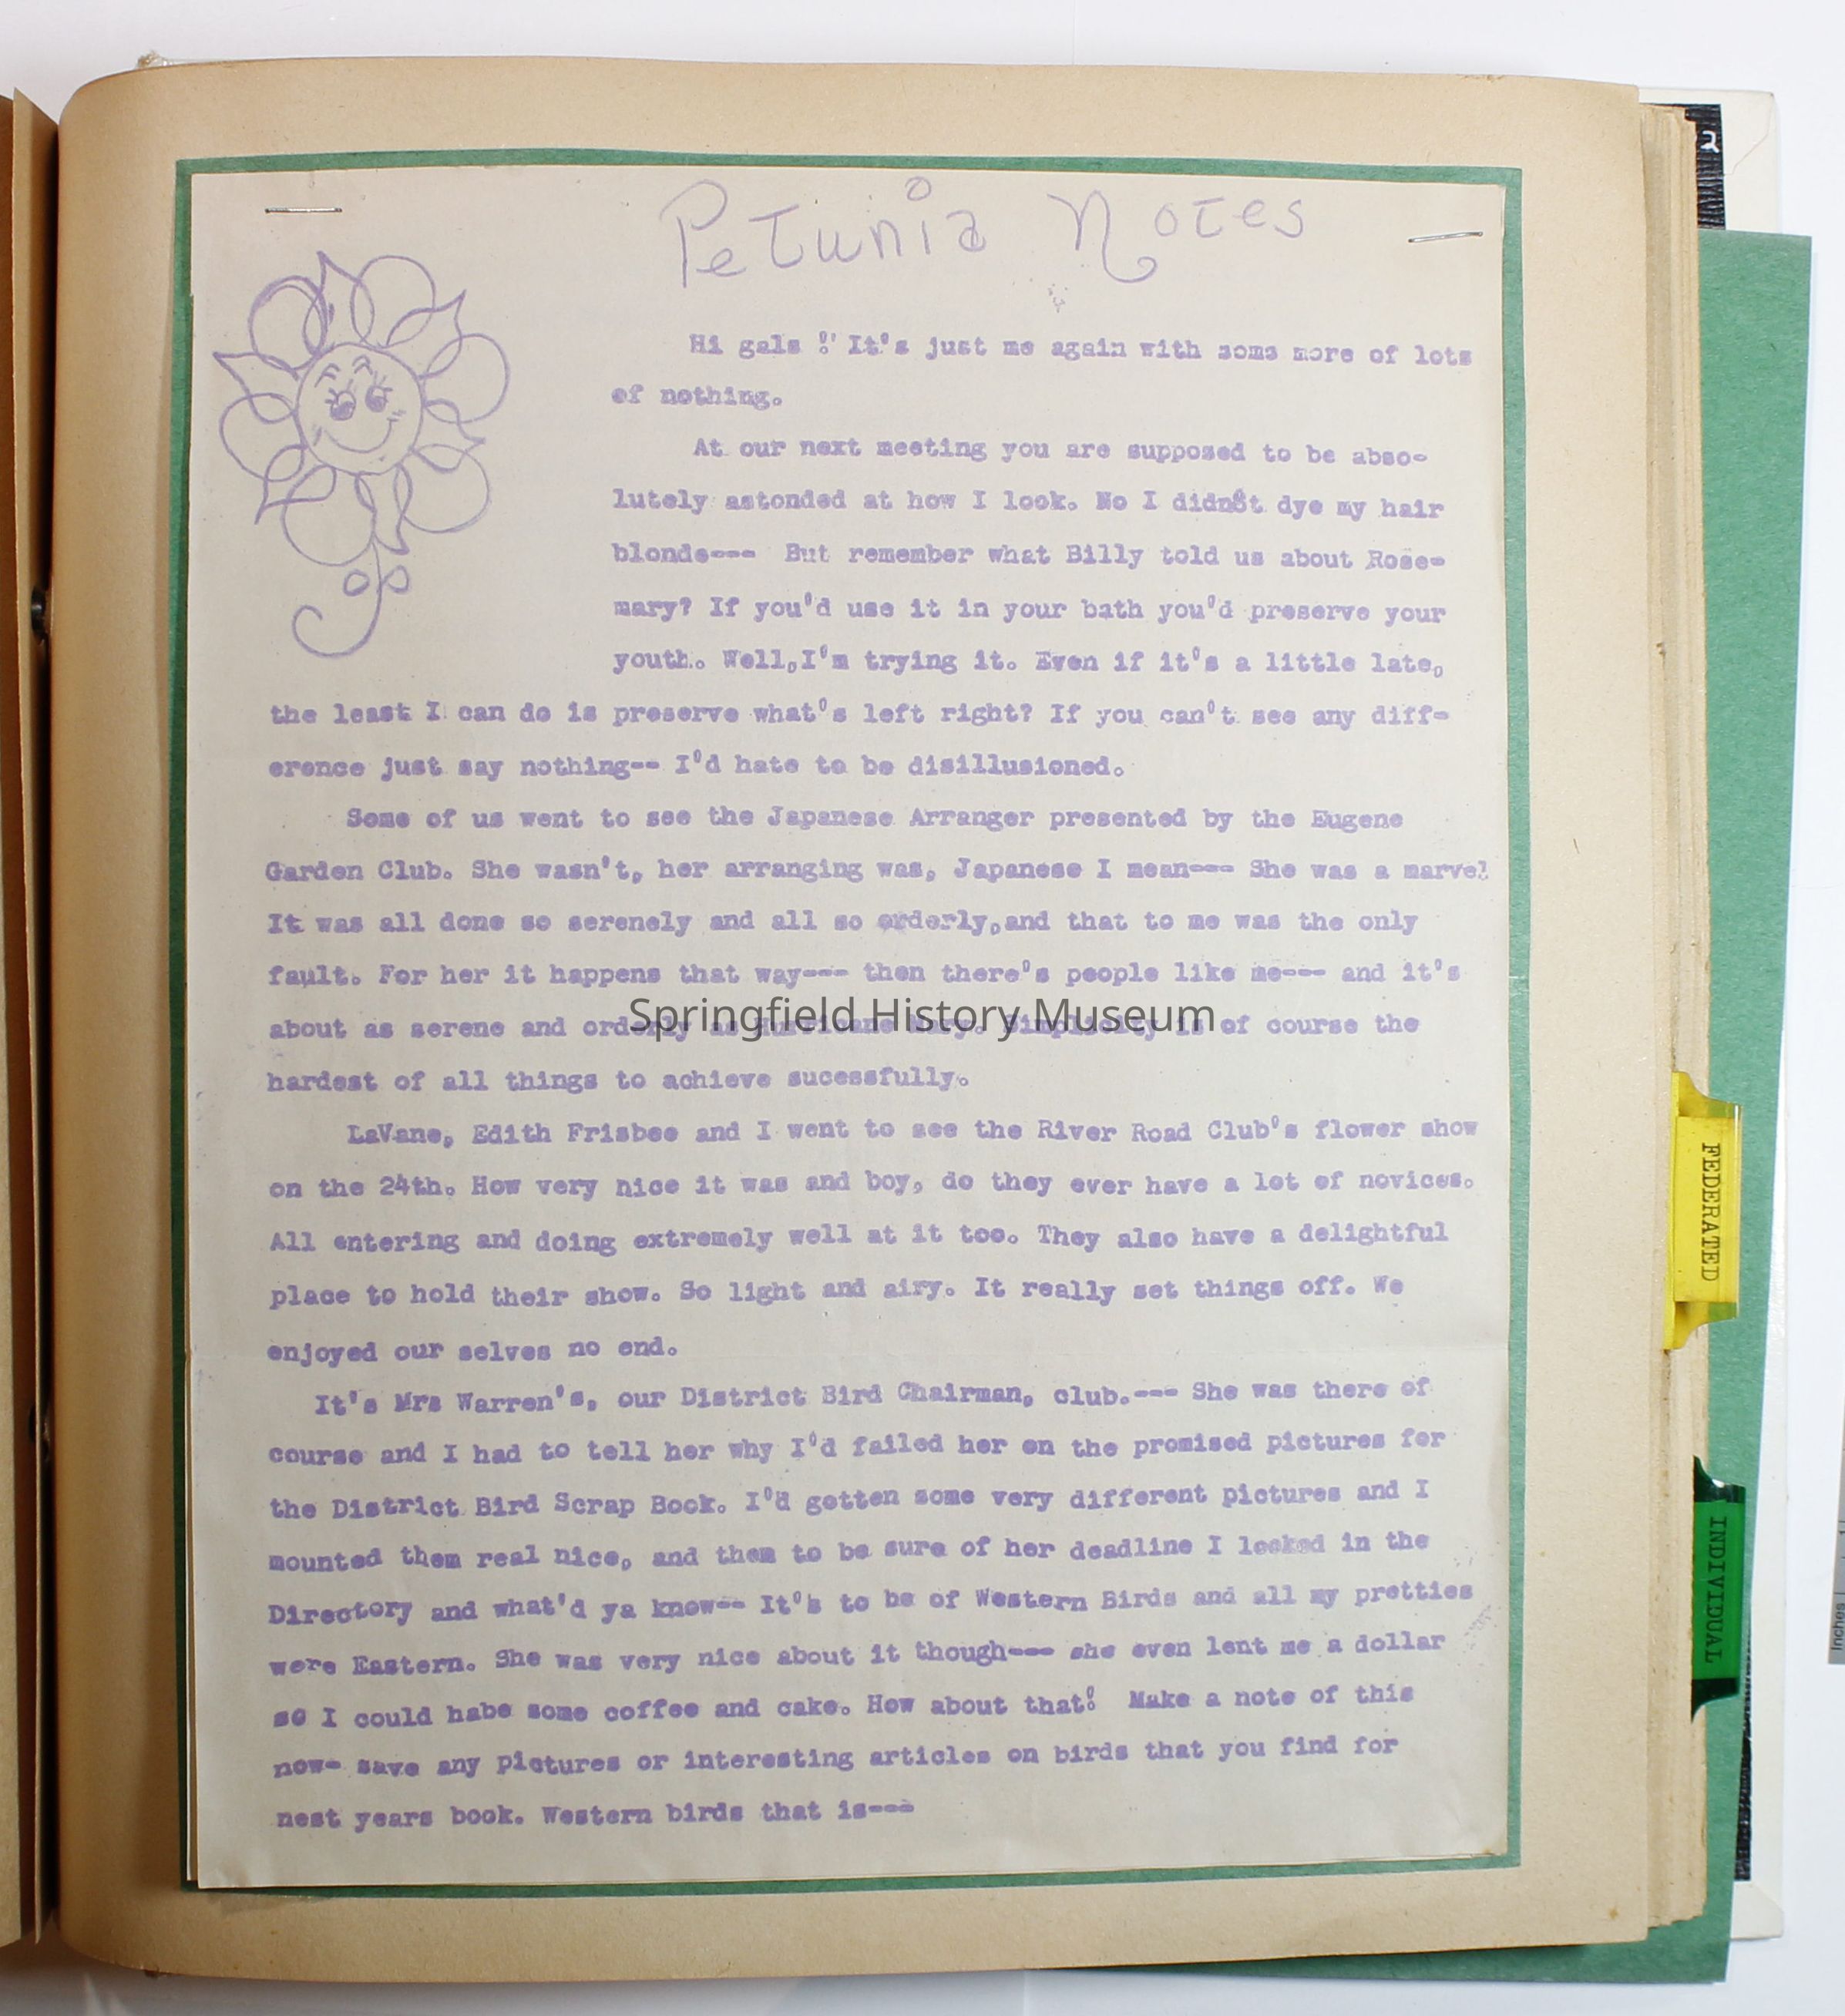 2
Petunia Notes
Hi gals !' It's just me again with some more of lots
of nothing.
At our next meeting you are supposed to be abso-
lutely astonded at how I look. No I didn't dye my hair
blonde--- But remember what Billy told us about Rose-
mary? If you'd use it in your bath you'd preserve your
youth. Well,I'm trying it. Even if it's a little late,
the least I can do is preserve what's left right? If you can't see any diff-
erence just say nothing-- I'd hate to be disillusioned.
Some of us went to see the Japanese Arranger presented by the Eugene
Garden Club. She wasn't, her arranging was, Japanese I mean--- She was a marvel
It was all done so serenely and all so orderly,and that to me was the only
fault. For her it happens that way--- then there's people like me--- and it's
about as serene and orderly as Hurricane Mary. Simplicity is of course the
Springfield History Museum
hardest of all things to achieve sucessfully.
LaVane, Edith Frisbee and I went to see the River Road Club's flower show
on the 24th. How very nice it was and boy, do they ever have a lot of novices.
All entering and doing extremely well at it too. They also have a delightful
place to hold their show. So light and airy. It really set things off. We
enjoyed our selves no end.
It's Mrs Warren's, our District Bird Chairman, club.--- She was there of
course and I had to tell her why I'd failed her on the promised pictures for
the District Bird Scrap Book. I'd gotten some very different pictures and I
mounted them real nice, and them to be sure of her deadline I looked in the
Directory and what'd ya know-- It's to be of Western Birds and all my pretties
were Eastern. She was very nice about it though--- she even lent me a dollar
so I could habe some coffee and cake. How about that! Make a note of this
now- save any pictures or interesting articles on birds that you find for
nest years book. Western birds that is---
FEDERATED
INDIVIDUAL
Inches